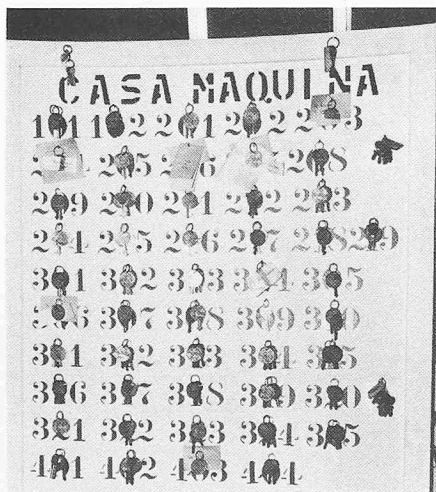 CASA MAQUINA
101 102 201 202 203
204 205 206 207 208
209 210 211 212 213
214 215 216 217 218 219
301 302 303 304 305
306 307 308 309 310
311 312 313 314 315
316 317 318 319 320
321 322 323 324 325
401 402 403 404